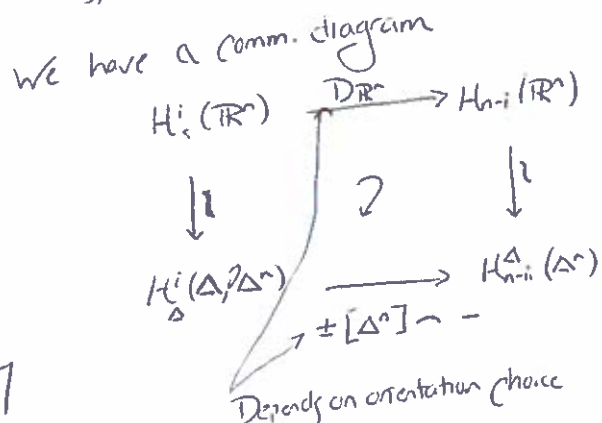 We have a comm. diagram
H^i_c(ℝ^n) D_ℝ^n → H_{n-i}(ℝ^n)
↓≀ ↻ ↓≀
H^i_Δ(Δ^n, ∂Δ^n) → H^Δ_{n-i}(Δ^n)
±[Δ^n] ⌢ -
Depends on orientation choice